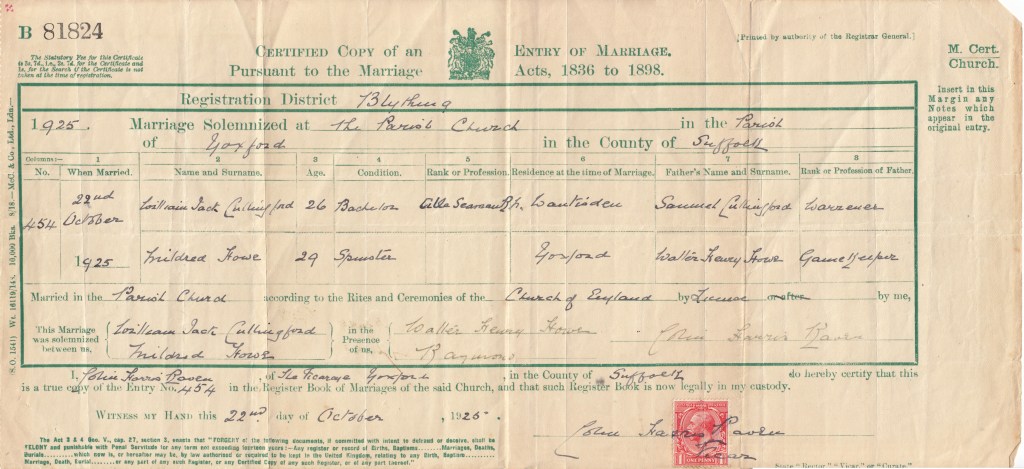 B 81824
The Statutory Fee for this Certificate
is 2s. 7d., i.e., 2s. 7d. for the Certificate and
1s. for the Search if the Certificate is not
taken at the time of registration.
CERTIFIED COPY OF AN ENTRY OF MARRIAGE.
PURSUANT TO THE MARRIAGE ACTS, 1836 TO 1898.
[Printed by authority of the Registrar General.]
M. Cert.
Church.
Insert in this
Margin any
Notes which
appear in the
original entry.
Registration District Blything
1925. Marriage Solemnized at The Parish Church in the Parish
of Yoxford in the County of Suffolk
Columns:— 1 2 3 4 5 6 7 8
No. When Married. Name and Surname. Age. Condition. Rank or Profession. Residence at the time of Marriage. Father's Name and Surname. Rank or Profession of Father.
454 22nd October 1925 William Jack Cullingford 26 Bachelor Able Seaman R.N. Wantisden Samuel Cullingford Warrener
Mildred Howe 29 Spinster Yoxford Walter Henry Howe Gamekeeper
Married in the Parish Church according to the Rites and Ceremonies of the Church of England by License or after by me,
This Marriage was solemnized between us, William Jack Cullingford
Mildred Howe
in the Presence of us, Walter Henry Howe
Raymond
Colin Harris Raven
I, Colin Harris Raven, of The Vicarage Yoxford, in the County of Suffolk do hereby certify that this
is a true copy of the Entry No. 454 in the Register Book of Marriages of the said Church, and that such Register Book is now legally in my custody.
WITNESS MY HAND this 22nd day of October 1925.
Colin Harris Raven
Vicar
ONE PENNY
The Act 3 & 4 Geo. V., cap. 27, section 3, enacts that "FORGERY of the following documents, if committed with intent to defraud or deceive, shall be
FELONY and punishable with Penal Servitude for any term not exceeding fourteen years:—Any register or record of Births, Baptisms.......... Marriages, Deaths,
Burials.......... which now is, or hereafter may be, by law authorised or required to be kept in the United Kingdom, relating to any Birth, Baptism..........
Marriage, Death, Burial.......... or any part of any such Register, or any Certified Copy of any such Register, or of any part thereof."
State "Rector" "Vicar" or "Curate."